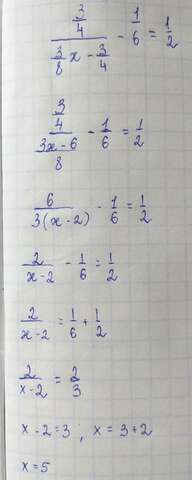 (3/4)/(3/8 x - 3/4) - 1/6 = 1/2
(3/4)/((3x-6)/8) - 1/6 = 1/2
6/(3(x-2)) - 1/6 = 1/2
2/(x-2) - 1/6 = 1/2
2/(x-2) = 1/6 + 1/2
2/(x-2) = 2/3
x-2=3; x=3+2
x=5